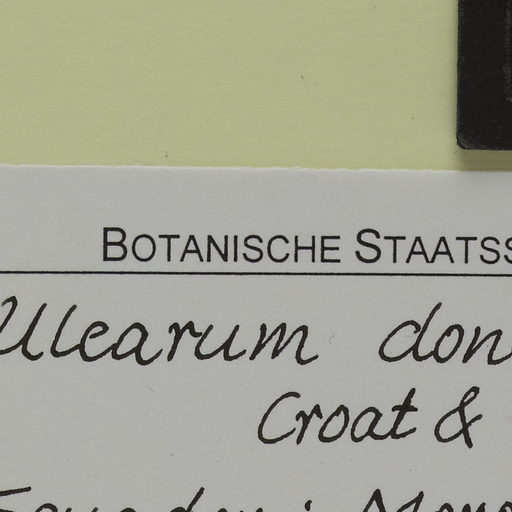 BOTANISCHE STAATSS
Ulearum don
Croat &